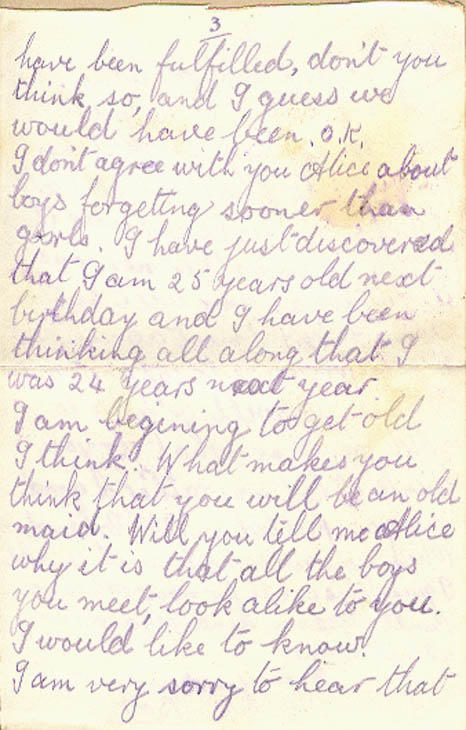 3
have been fulfilled, don't you
think so, and I guess we
would have been. O.K.
I don't agree with you Alice about
boys forgeting sooner than
girls. I have just discovered
that I am 25 years old next
birthday and I have been
thinking all along that I
was 24 years next year.
I am begining to get old
I think. What makes you
think that you will be an old
maid. Will you tell me Alice
why it is that all the boys
you meet, look alike to you.
I would like to know.
I am very sorry to hear that